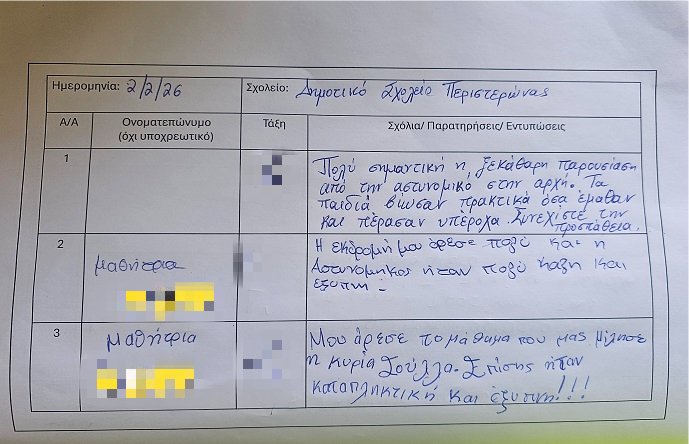 Ημερομηνία: 2/2/26 Σχολείο: Δημοτικό Σχολείο Περιστερώνας
Α/Α Ονοματεπώνυμο Τάξη Σχόλια/ Παρατηρήσεις/ Εντυπώσεις
(όχι υποχρεωτικό)
1 Πολύ σημαντική η ξεκάθαρη παρουσίαση
από την αστυνομικό στην αρχή. Τα
παιδιά βίωσαν πρακτικά όσα έμαθαν
και πέρασαν υπέροχα. Συνεχίστε την
προσπάθεια.
2 μαθήτρια Η εκδρομή μου άρεσε πολύ και η
Αστυνομηκος ήταν πολύ καλη και
εξυπνη -
3 μαθήτρια Μου άρεσε το μάθημα που μας μίλησε
η κυρία Σούλλα. Επίσης ήταν
καταπληκτική και έξυπνη!!!